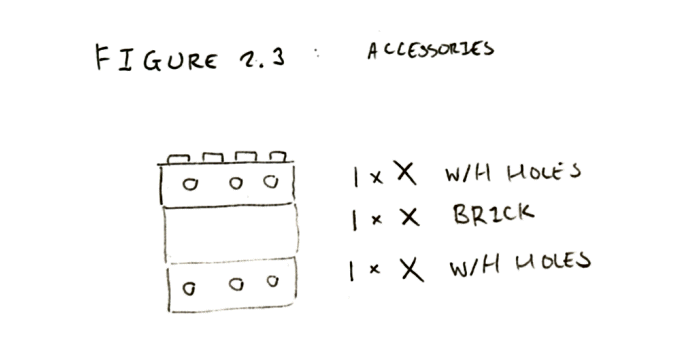 FIGURE 2.3 : ACCESSORIES
1 x X W/H HOLES
1 x X BRICK
1 x X W/H HOLES